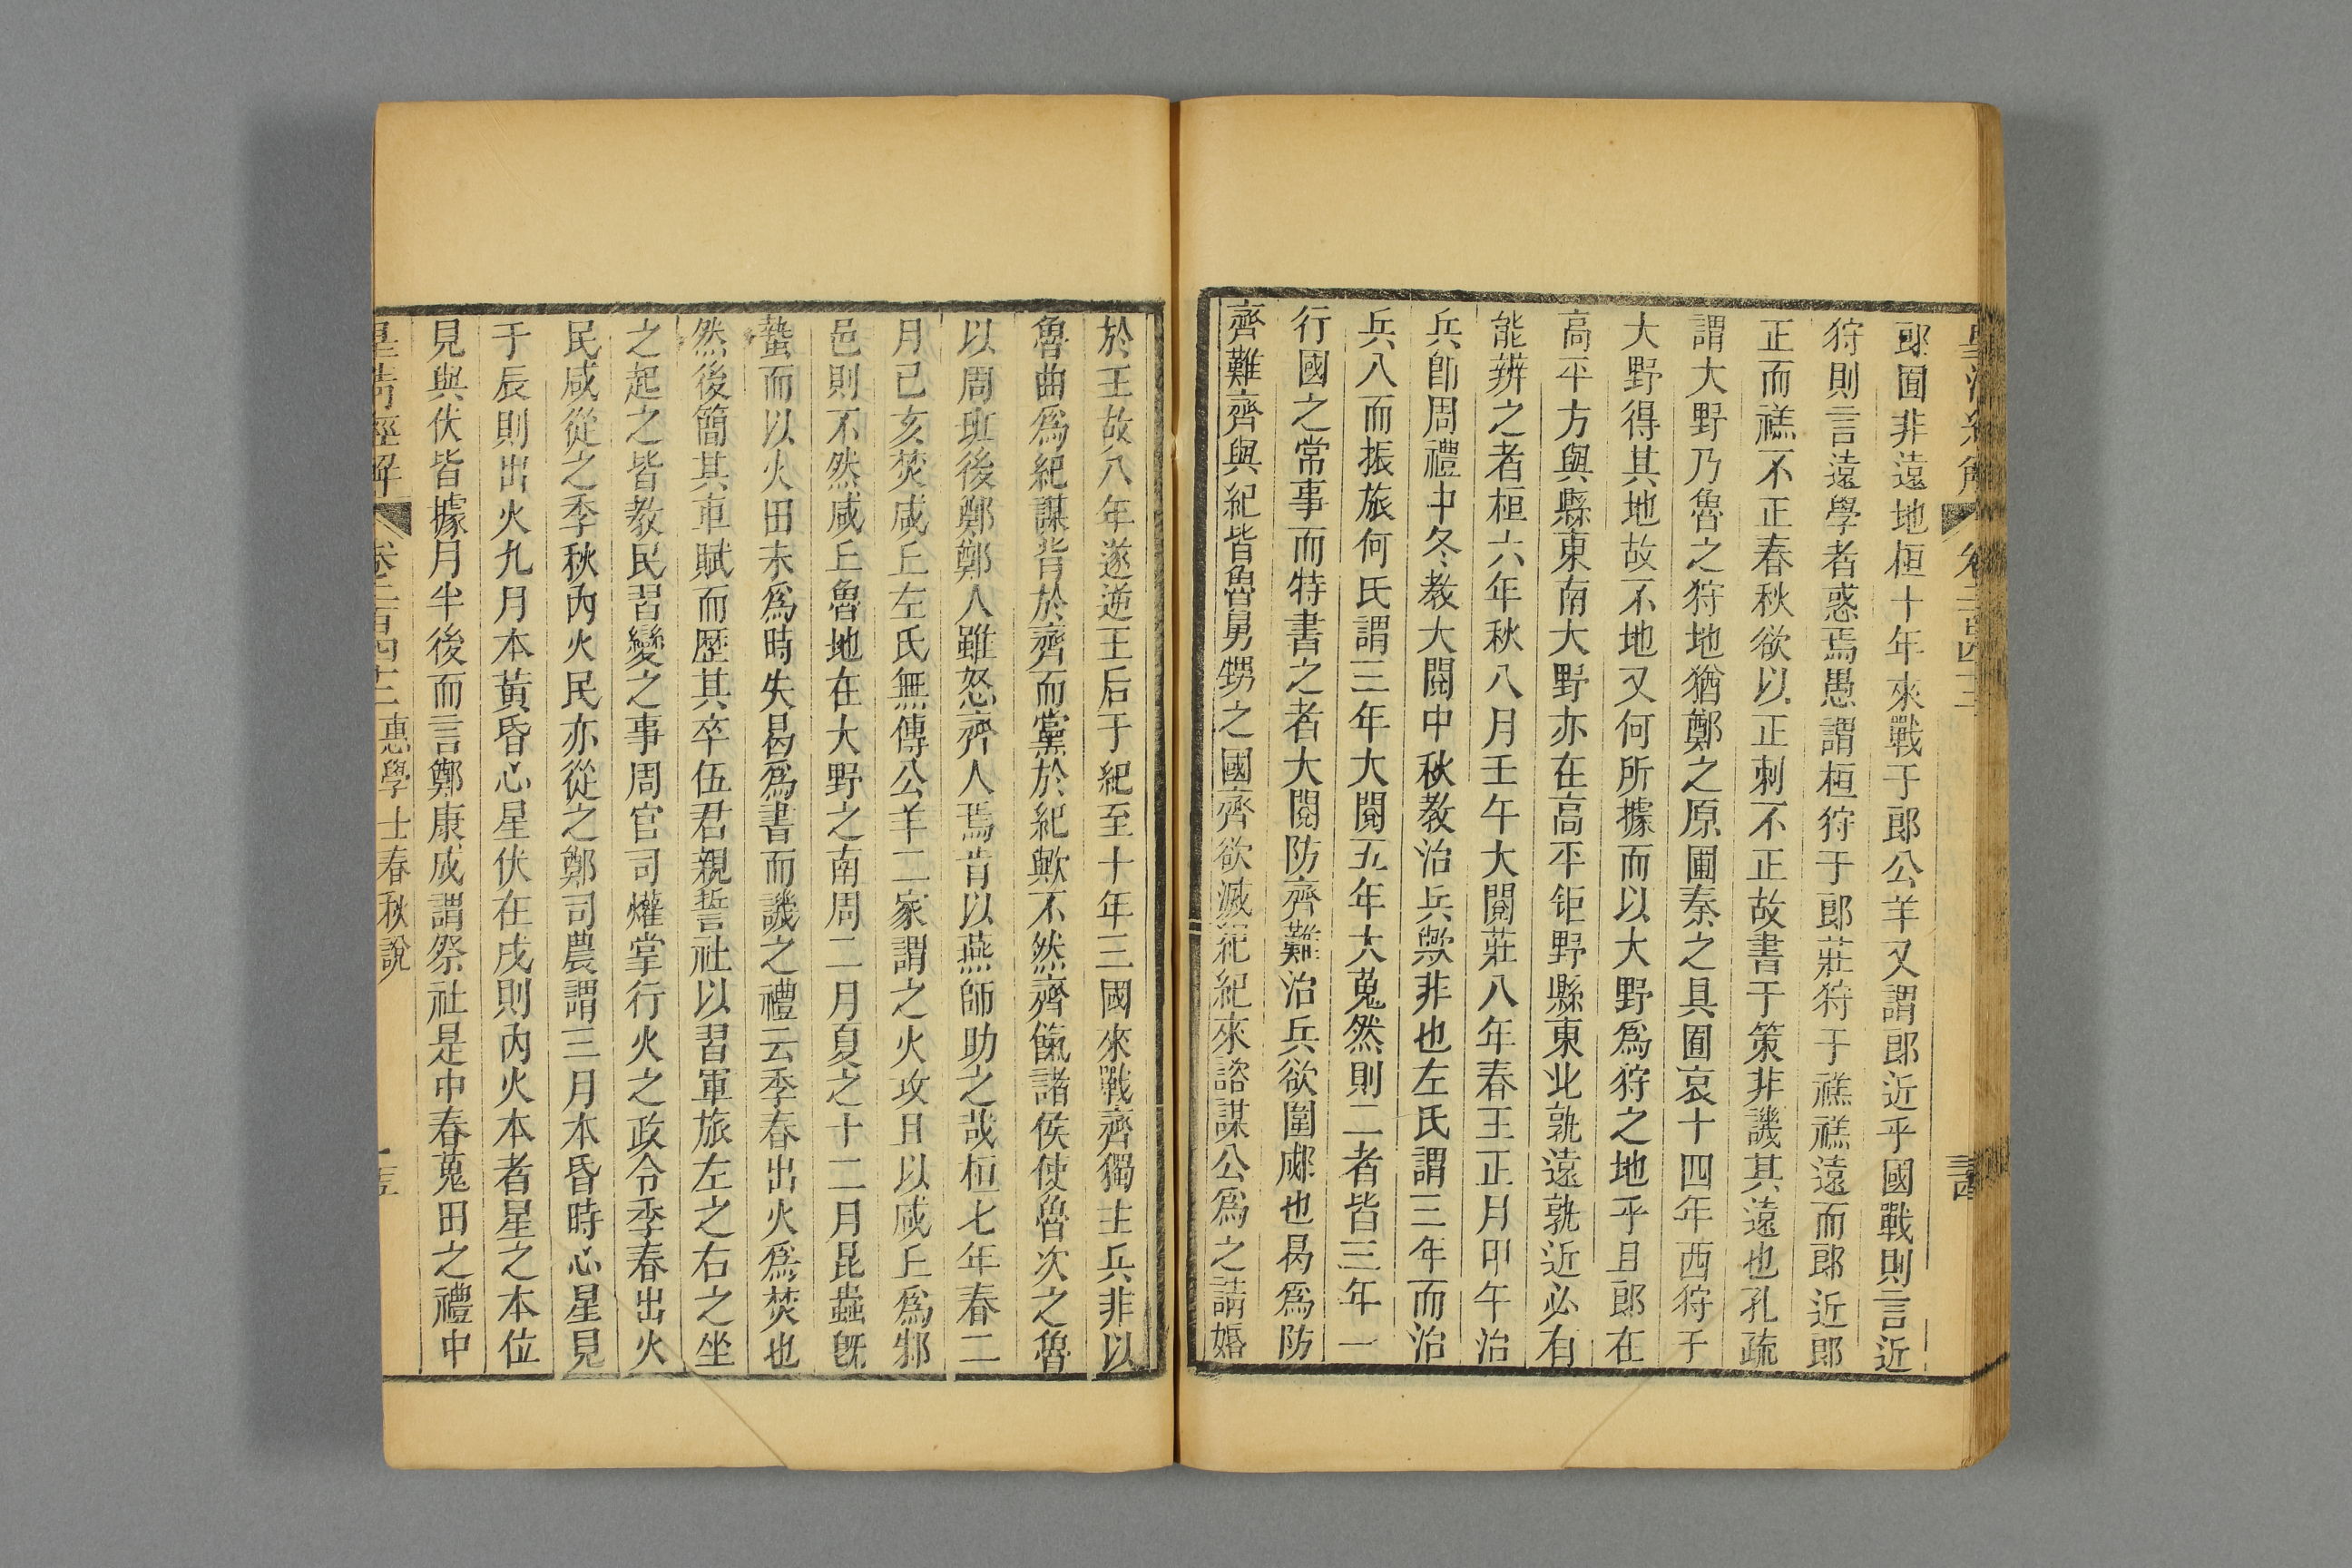 皇清經解 卷二百四十三 三十四
郎囿非遠地桓十年來戰于郎公羊又謂郎近乎國戰則言近
狩則言遠學者惑焉愚謂桓狩于郎莊狩于禚禚遠而郎近郎
正而禚不正春秋欲以正刺不正故書于策非譏其遠也孔疏
謂大野乃魯之狩地猶鄭之原圃秦之具囿哀十四年西狩于
大野得其地故不地又何所據而以大野爲狩之地乎且郎在
高平方與縣東南大野亦在高平鉅野縣東北孰遠孰近必有
能辨之者桓六年秋八月壬午大閱莊八年春王正月甲午治
兵卽周禮中冬教大閱中秋教治兵歟非也左氏謂三年而治
兵入而振旅何氏謂三年大閱五年大蒐然則二者皆三年一
行國之常事而特書之者大閱防齊難治兵欲圍郕也曷爲防
齊難齊與紀皆魯舅甥之國齊欲滅紀紀來諮謀公爲之請婚
於王故八年遂逆王后于紀至十年三國來戰齊獨主兵非以
魯曲爲紀謀背於齊而黨於紀歟不然齊餼諸侯使魯次之魯
以周班後鄭鄭人雖怒齊人焉肯以燕師助之哉桓七年春二
月己亥焚咸丘左氏無傳公羊二家謂之火攻且以咸丘爲邾
邑則不然咸丘魯地在大野之南周二月夏之十二月昆蟲旣
蟄而以火田未爲時失曷爲書而譏之禮云季春出火爲焚也
然後簡其車賦而歷其卒伍君親誓社以習軍旅左之右之坐
之起之皆教民習變之事周官司爟掌行火之政令季春出火
民咸從之季秋內火民亦從之鄭司農謂三月本昏時心星見
于辰則出火九月本黃昏心星伏在戌則內火本者星之本位
見與伏皆據月半後而言鄭康成謂祭社是中春蒐田之禮中
皇清經解 卷二百四十三 惠學士春秋說 三十五